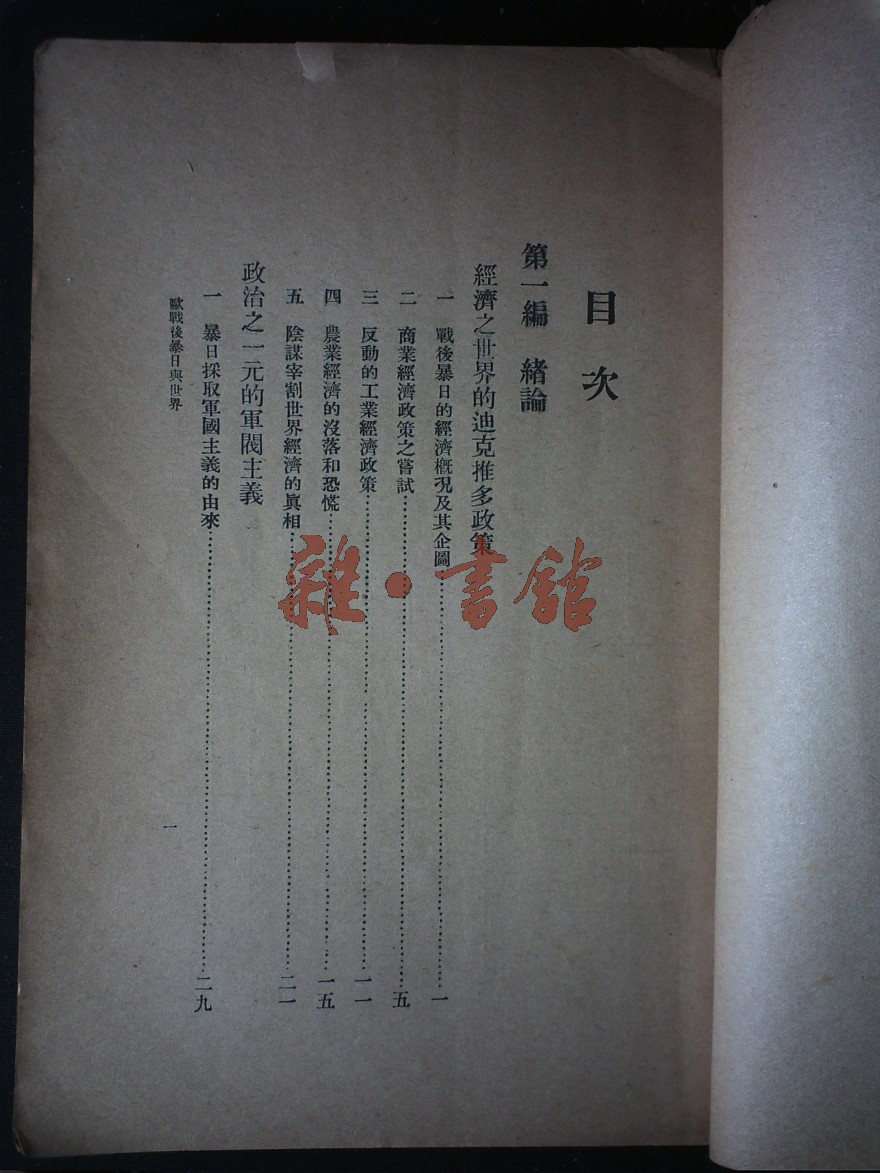 目次
第一編　緒論
經濟之世界的迪克推多政策
一　戰後暴日的經濟概況及其企圖……一
二　商業經濟政策之嘗試……五
三　反動的工業經濟政策……一一
四　農業經濟的沒落和恐慌……一五
五　陰謀宰割世界經濟的眞相……二一
政治之一元的軍閥主義
一　暴日採取軍國主義的由來……二九
歐戰後暴日與世界
一
雜·書館